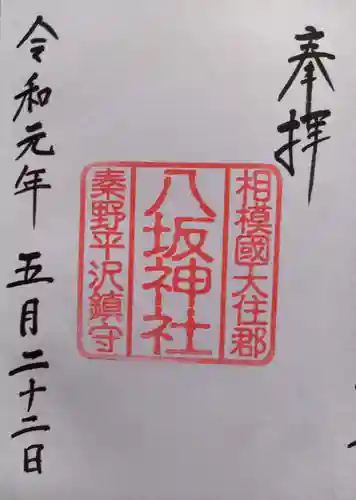 奉拝
相模國大住郡
八坂神社
秦野平沢鎮守
令和元年 五月二十二日